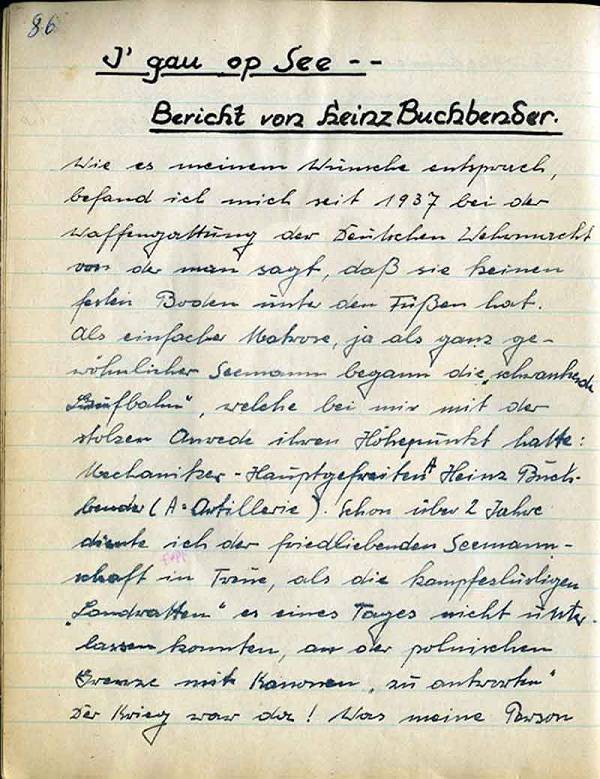 86
I' gau op See --
Bericht von Heinz Buchbender.
Wie es meinem Wunsche entsprach,
befand ich mich seit 1937 bei der
Waffengattung der Deutschen Wehrmacht
von der man sagt, daß sie keinen
festen Boden unter den Füßen hat.
Als einfacher Matrose, ja als ganz ge-
wöhnlicher Seemann begann die „schwankende
Laufbahn", welche bei mir mit der
stolzen Anrede ihren Höhepunkt hatte:
Mechaniker-Hauptgefreiten A Heinz Buch-
bender (A=Artillerie). Schon über 2 Jahre
diente ich der friedliebenden Seemann-
schaft in Treue, als die kampfeslustigen
„Landratten" es eines Tages nicht unter-
lassen konnten, an der polnischen
Grenze mit Kanonen „zu antworten"
Der Krieg war da! Was meine Person